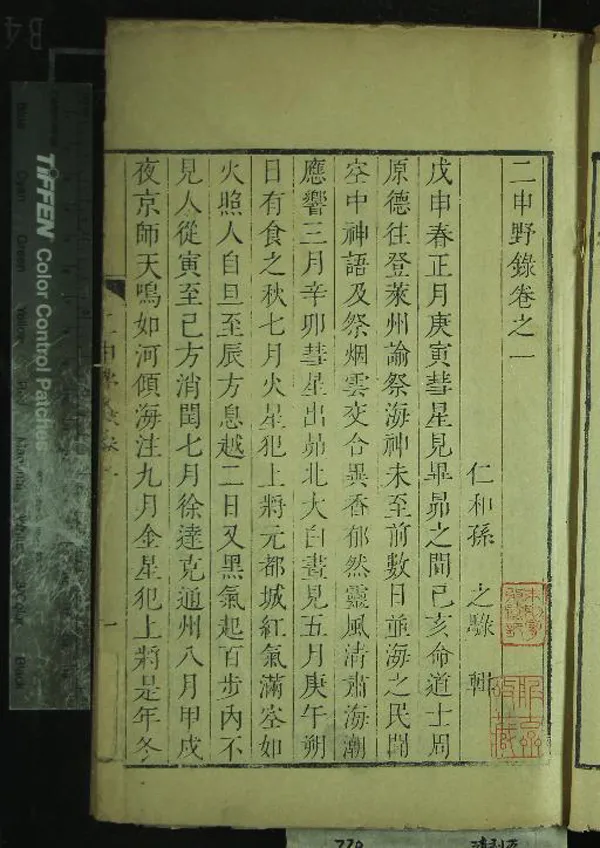 二申野錄卷之一
仁和孫 之騄 輯
戊申春正月庚寅彗星見畢昴之間己亥命道士周
原德往登萊州諭祭海神未至前數日並海之民聞
空中神語及祭烟雲交合異香郁然靈風清肅海潮
應響三月辛卯彗星出昴北大白晝見五月庚午朔
日有食之秋七月火星犯上將元都城紅氣滿空如
火照人自旦至辰方息越二日又黑氣起百步內不
見人從寅至巳方消閏七月徐達克通州八月甲戌
夜京師天鳴如河傾海注九月金星犯上將是年冬
一
B4
TIFFEN Color Control Patches
Blue
Cyan
Green
Yellow
Red
Magenta
White
3/Color
Black